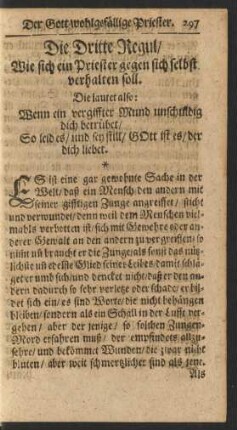 Der Gott-wohlgefällige Priester. 297
Die Dritte Regul/
Wie sich ein Priester gegen sich selbst
verhalten soll.
Die lautet also:
Wenn ein vergiffter Mund unschuldig
dich betrübet/
So leid es/ und sey still/ GOtt ist es/ der
dich liebet.
*
ES ist eine gar gewohnte Sache in der
Welt/ daß ein Mensch den andern mit
seiner gifftigen Zunge angreiffet/ sticht
und verwundet/ denn weil dem Menschen viel-
mahls verbotten ist/ sich mit Gewehre oder an-
derer Gewalt an den andern zu vergreiffen/ so
nim̃t nü braucht er die Zunge/ als sonst das nütz-
lichste und edelste Glied seines Leibes/ damit schlä-
get er und sich/ und dencket nicht/ daß er den an-
dern dadurch so sehr verletzt oder schade/ er bil-
det sich ein/ es sind Worte/ die nicht behangen
bleiben/ sondern als ein Schall in der Lufft ver-
gehen/ aber der jenige/ so solchen Zungen-
Mord erfahren muß/ der empfindets allzu-
sehr/ und bekömmet Wunden/ die zwar nicht
bluten/ aber weit schmertzlicher sind als jene.
Als